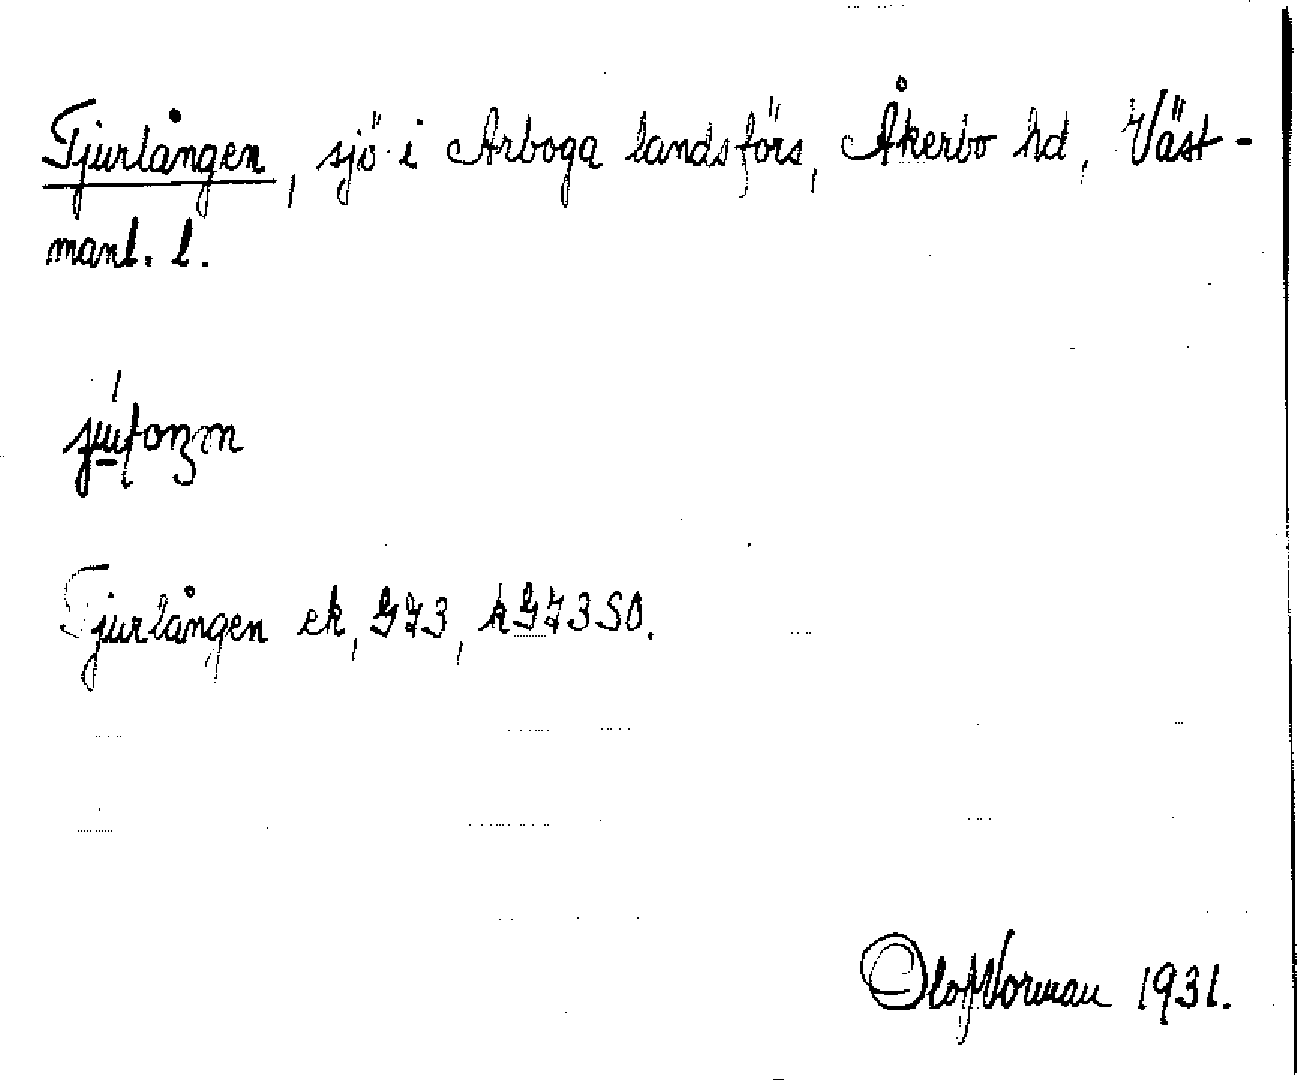 Tjurlången, sjö i Arboga landsförs, Åkerbo hd, Väst-
manl. l.
Tjurlången ek, G73, kG73SO.
Olof Norman 1931.